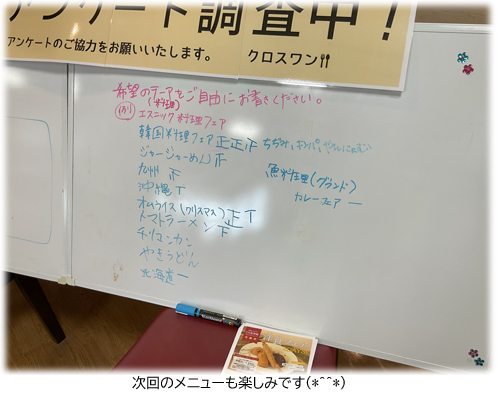 アンケート調査中！
アンケートのご協力をお願いいたします。 クロスワン
希望のテーマをご自由にお書きください。
(料理)
(例) エスニック料理フェア
韓国料理フェア 正正正 ちぢみ、キンパ、
ジャージャーめん 正
九州 正
沖縄 T
オムライス(クリスマス) 正T
トマトラーメン 正
チリマンカン
やきうどん
北海道 一
魚料理(グランド)
カレーフェア 一
次回のメニューも楽しみです(*^^*)